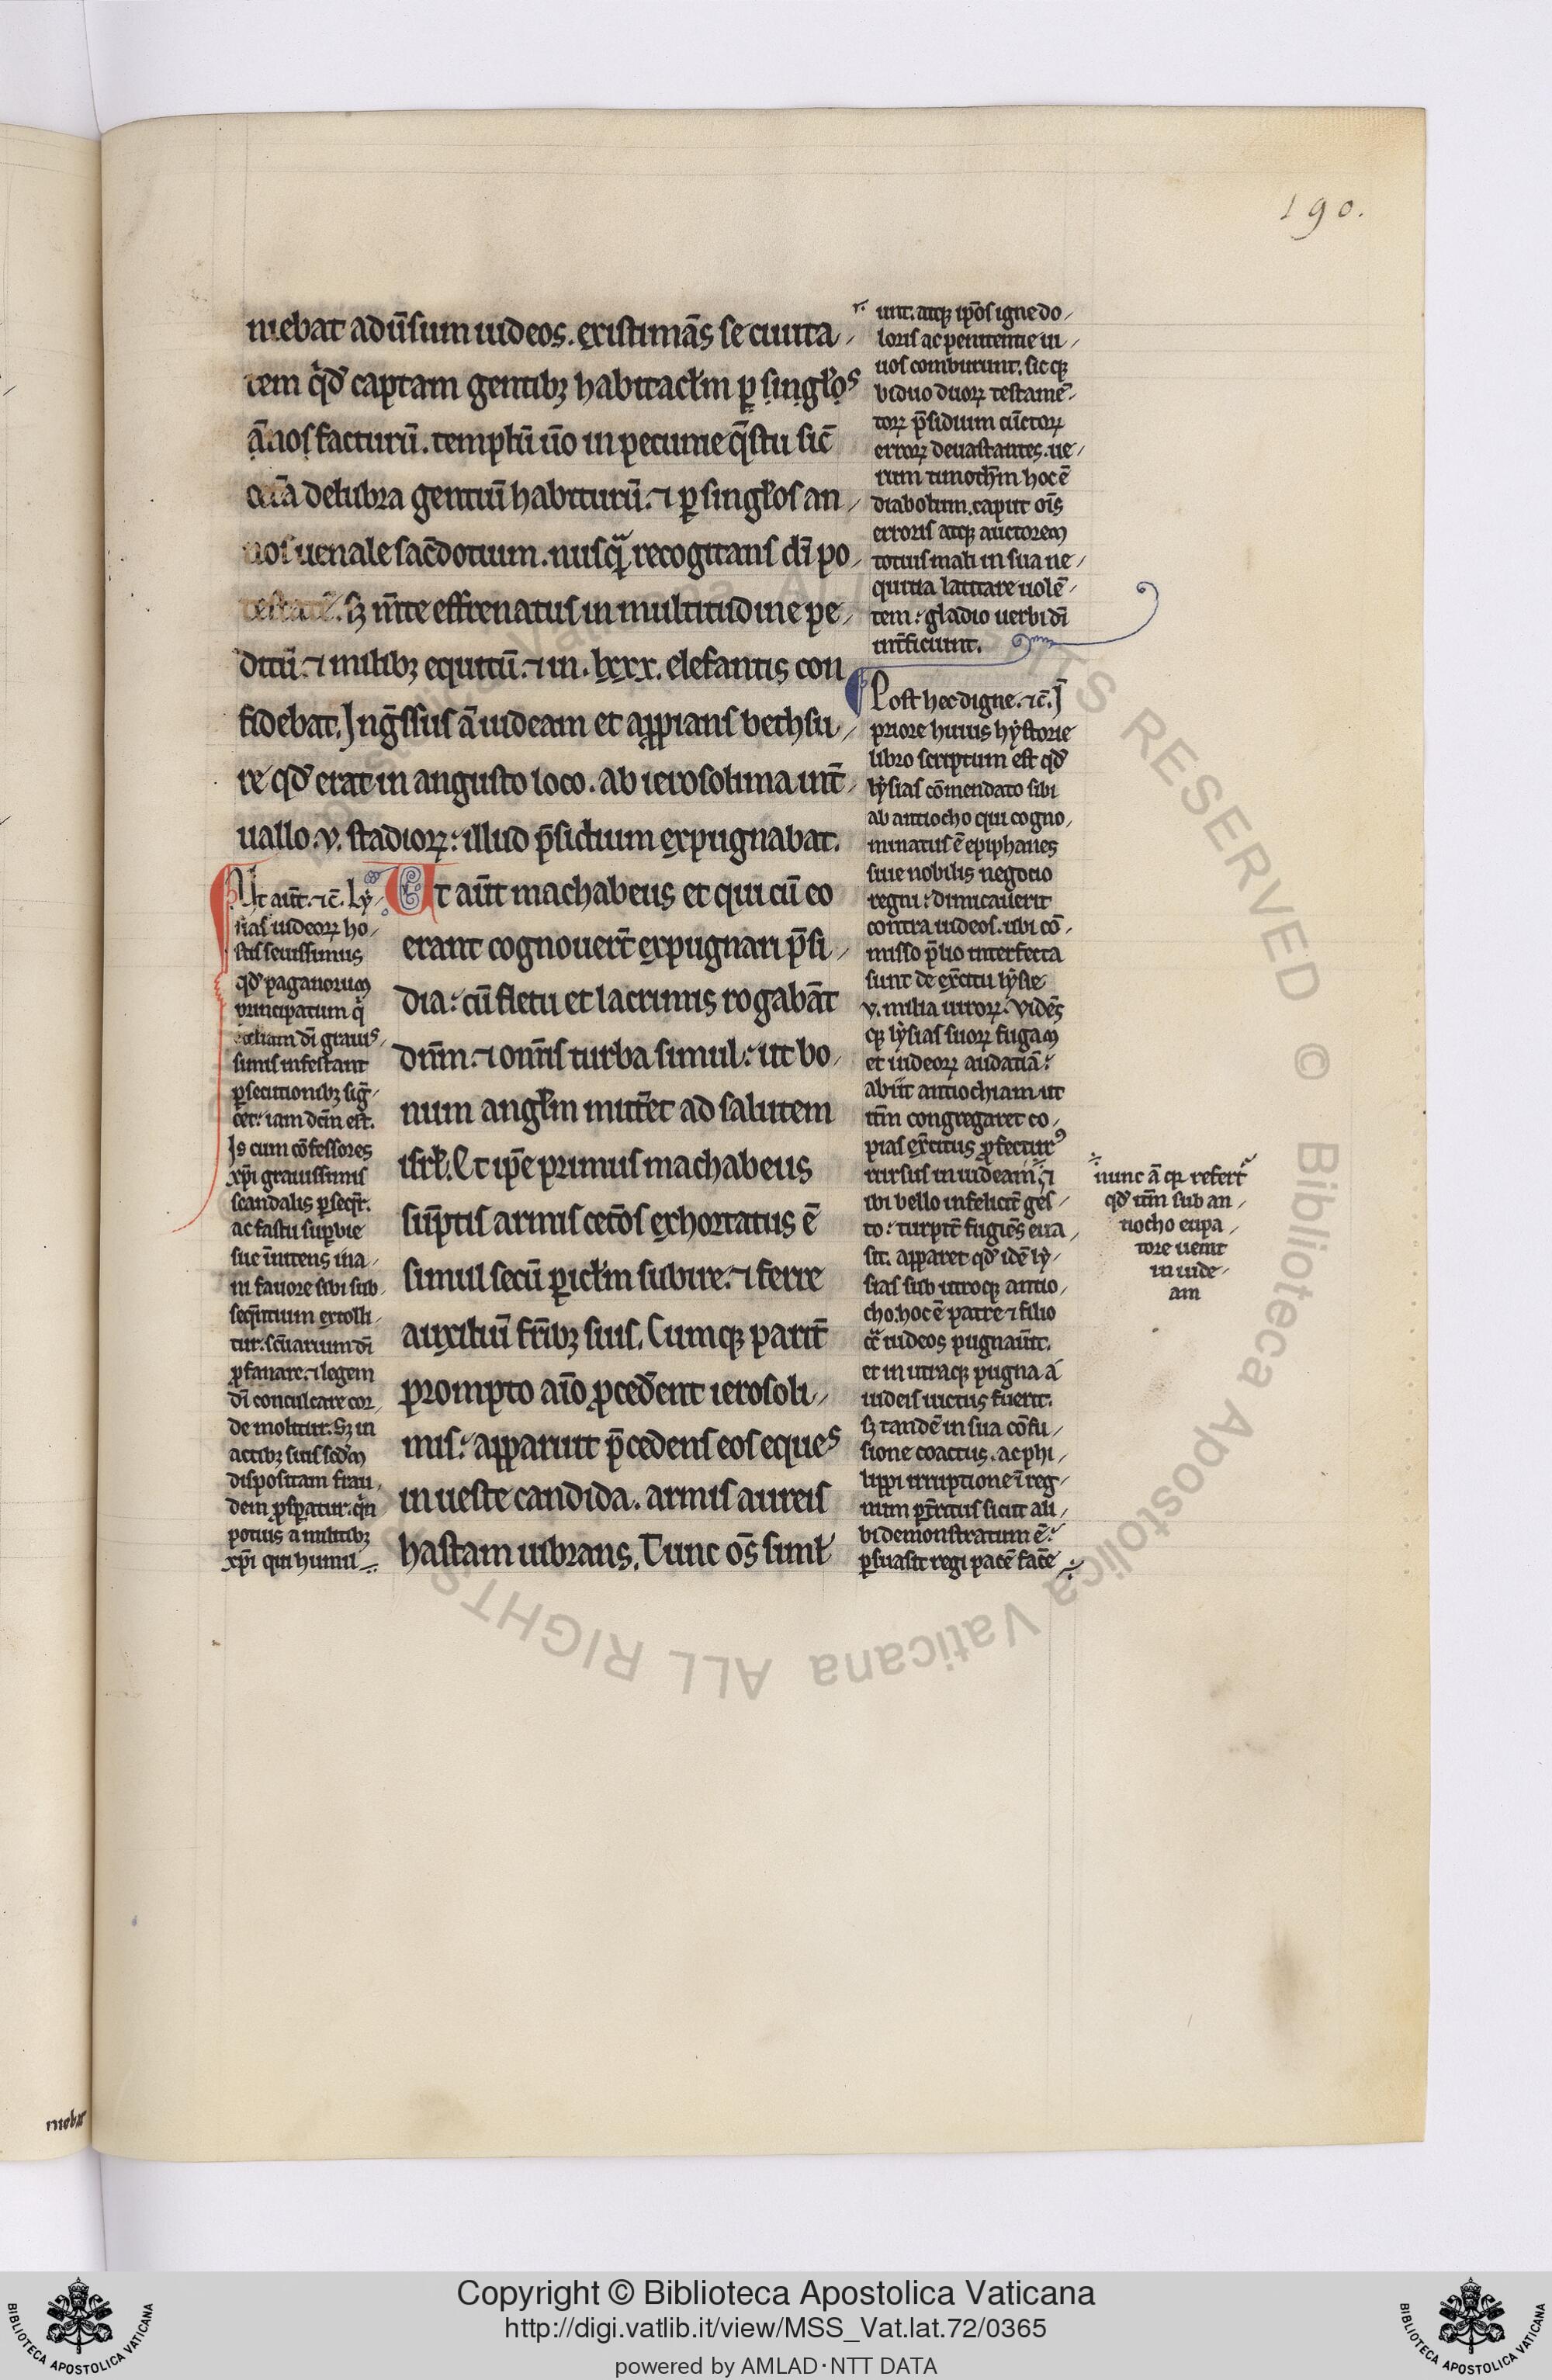 190.
niebat adu̅sum iudeos. existima̅s se ciuita
tem q̇d captam gentibꝫ habitacl̅m ꝑ singl̅os
a̅nos facturu̅. templu̅ u̅o in pecunie q̅stu sic̅
delubra gentiu̅ habituru̅. ⁊ ꝑ singl̅os an
nos uenale sac̅dotium. nusq̅ recogitans di̅ po
testate̅. sꝫ m̅te effrenatus in multitudine pe
ditu̅. ⁊ milibꝫ equitu̅. ⁊ in. lxxx. elefantis con
fidebat. Ing̅ssus a̅ iudeam et appians bethsu
re qd̓ erat in angusto loco. ab ierosolima int̅
uallo. v. stadioꝝ: illud p̅sidium expugnabat.
Ut au̅t machabeus et qui cu̅ eo
erant cognouer̅t expugnari p̅si
dia: cu̅ fletu et lacrimis rogaba̅t
dn̅m. ⁊ omn̅is turba simul: ut bo
num angl̅m mitt̅et ad salutem
isrl̅. Et ip̅e primus machabeus
su̅ptis armis cet̅os exhortatus e̅
simul secu̅ ꝑicl̅m subire. ⁊ ferre
auxiliu̅ fr̅ibꝫ suis. Cumqꝫ parit̅
prompto ai̅o ꝓced̅ent ierosoli
mis: apparuit p̅cedens eos eques
in ueste candida. armis aureis
hastam uibrans. Tunc os̅ siml̅
Ut au̅t. ⁊c̅. Ly
sias iudeoꝝ ho
stis seuissimus
qd̓ paganorum
principatum q̇
eccliam di̅ grauis
simis infestant
ꝑsecutionibꝫ sig̅
cet: iam dc̅m est.
Is cum co̅fessores
xp̅i grauissimis
scandalis ꝑseqt̅.
ac fastu suꝑbie
sue i̅nitens ina
ni fauore sibi sub
seq̅ntium extolli
tur: sc̅uarium di̅
ꝓfanare. ⁊ legem
di̅ conculcare cor
de molitur. Sꝫ in
actibꝫ suis scd̅m
dispositam frau
dem ꝓsꝑatur. qn̅
potius a militibꝫ
xp̅i qui humil
unt. atqꝫ ip̅os igne do
loris ac penitentie ui
uos comburunt. sicqꝫ
biduo duoꝝ testame̅
toꝝ p̅sidium cu̅ctoꝝ
erroꝝ deuastantes. ue
rum timoth̅m hoc e̅
diabolum. caput oi̅s
erroris atqꝫ auctorem
totius mali in sua ne
quitia latitare uole̅
tem: gladio uerbi di̅
int̅ficiunt.
Post hec digne. ⁊c̅. I̅
priore huius hẏstorie
libro scriptum est qd̓
lẏsias co̅mendato sibi
ab antiocho qui cogno
minatus e̅ epiphanes
siue nobilis negocio
regni: dimicauerit
contra iudeos. ubi co̅
misso p̅lio interfecta
sunt de ex̅citu lẏsie
v. milia uiroꝝ. Vide̅s
qꝫ lẏsias suoꝝ fugam
et iudeoꝝ audatia̅:
abiit antiochiam ut
itm̅ congregaret co
pias ex̅citus ꝓfectur⁹
rursus in iudeam. ⁊
ibi bello infelicit̅ ges
to: turpit̅ fugie̅s eua
sit. apparet qd̓ ide̅ lẏ
sias sub utroqꝫ antio
cho. hoc e̅ patre ⁊ filio
ct̅ iudeos pugnau̅it.
et in utraqꝫ pugna a
iudeis uictus fuerit.
sꝫ tande̅ in sua co̅fu
sione coactus. ac phi
lippi irruptione i̅ reg
num pt̅ritus sicut ali
bi demonstratum e̅:
ꝑsuasit regi pace̅ face̅
nunc a̅ qꝫ refert
qd̓ itm̅ sub an
tiocho eupa
tore uenit
in iude
am
Copyright © Biblioteca Apostolica Vaticana
http://digi.vatlib.it/view/MSS_Vat.lat.72/0365
powered by AMLAD·NTT DATA